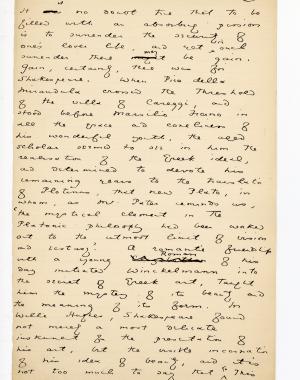 It is no doubt true that to be
filled with an absorbing passion
is to surrender the security of
one's lower life, and yet in such
surrender there may be gain.
Gain, certainly, there was for
Shakespeare. When Pico della
Mirandula crossed the threshold
of the villa of Careggi, and
stood before Marsilio Ficino in
all the grace and comeliness of
his wonderful youth, the aged
scholar seemed to see in him the
realisation of the Greek ideal,
and determined to devote his
remaining years to the translation
of Plotinus, that new Plato, in
whom, as Mr. Pater reminds us,
'the mystical element in the
Platonic philosophy had been worked
out to the utmost limit of vision
and ecstasy.' A romantic friendship
with a young Roman of his
day initiated Winckelmann into
the secret of Greek art, taught
him the mystery of its beauty and
the meaning of its form. In
Willie Hughes, Shakespeare found
not merely a most delicate
instrument for the presentation of
his art, but the visible incarnation
of his idea of beauty, and it is
not too much to say that to this